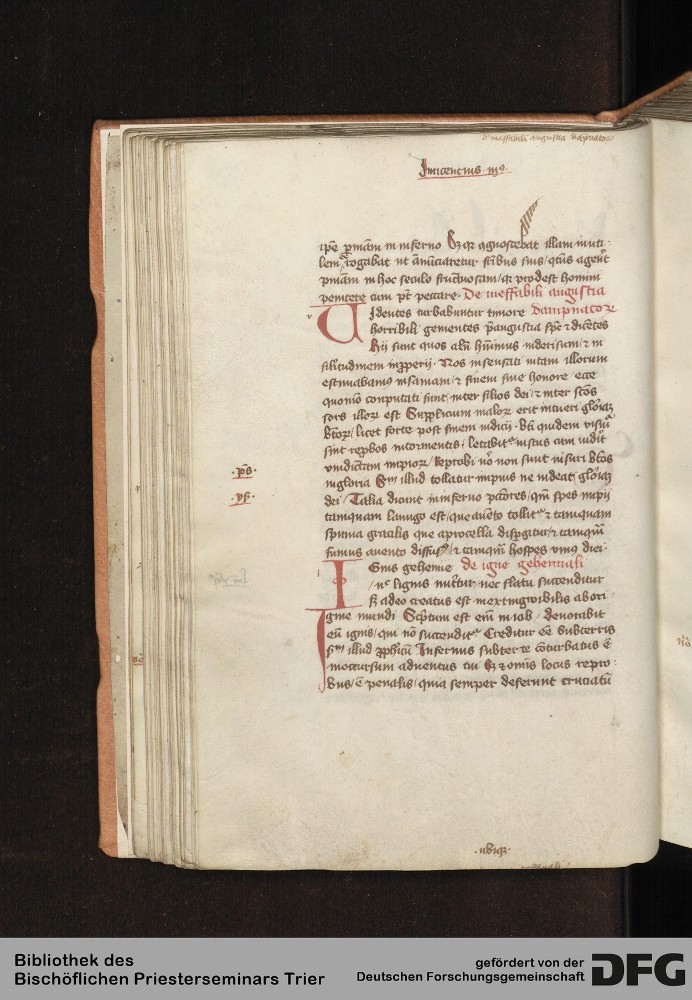 d' ineffabili angustia dapnator
Innicencius iij9
ipẽ pc̃niam in inferno Sz qr 9gnoscebat illam inuti-
lem rogabat ut ãnũciaretur fr̃ibus suis qt9us agẽt
pñiam in hoc seculo fructuosam qr prodest homini
penitere cum pt̃ peccare De ineffabili angustia
UIdentes turbabuntur timore dampnatorꝝ
horribili gementes p̃ angustia sp̃c ⁊ dicẽtes
hij sunt quos aliq̃ hũimus in derisum ⁊ in
silitudinem inpperij Nos insensati uitam illorum
estimabam9 insaniam ⁊ finem sine honore ecce
quom̃o conputati sunt inter filios dei ⁊ inter sc̃os
sors illorꝝ est Supplicium malorꝝ erit intueri glõiaz
bt̃orꝝ licet forte post finem iudicij bt̃i quidem uisuri
sint rep̃bos in tormentis letabitᷣ iustus cum uidit̃
uindictam impiorꝝ Reprobi uo̾ non sunt uisuri bt̃os
in gloria Sm illud tollatur impius ne uideat glõiaz
dei Talia dicunt in inferno pc̃tores qm̃ spes inpij
tamquam lanugo est que a uento tollitᷣ ⁊ tamquam
spuma gracilis que a procella dispgitur ⁊ tamquã
fumus a uento diffus9 ⁊ tamquã hospes uni9 diei
IGnis gehenne de igne gehennali
nc̃ lignis nut̾tur nec flatu succenditur
Sz a deo creatus est inextingwibilis ab ori-
gine mundi Sc̾ptum est eni in iob deuorabit
eũ ignis qui nõ succenditᷣ Creditur eẽ subterris
sm illud ꝓph̃icũ Infernus subter te cõturbatus ẽ
in occursum aduentus tui Sz ⁊ omis locus repro-
bus ẽ penalis quia semper deferunt cruciatũ
.ps̃.
.ys̃.
.ubiqꝫ.
Bibliothek des
Bischöflichen Priesterseminars Trier
gefördert von der
Deutschen Forschungsgemeinschaft
DFG